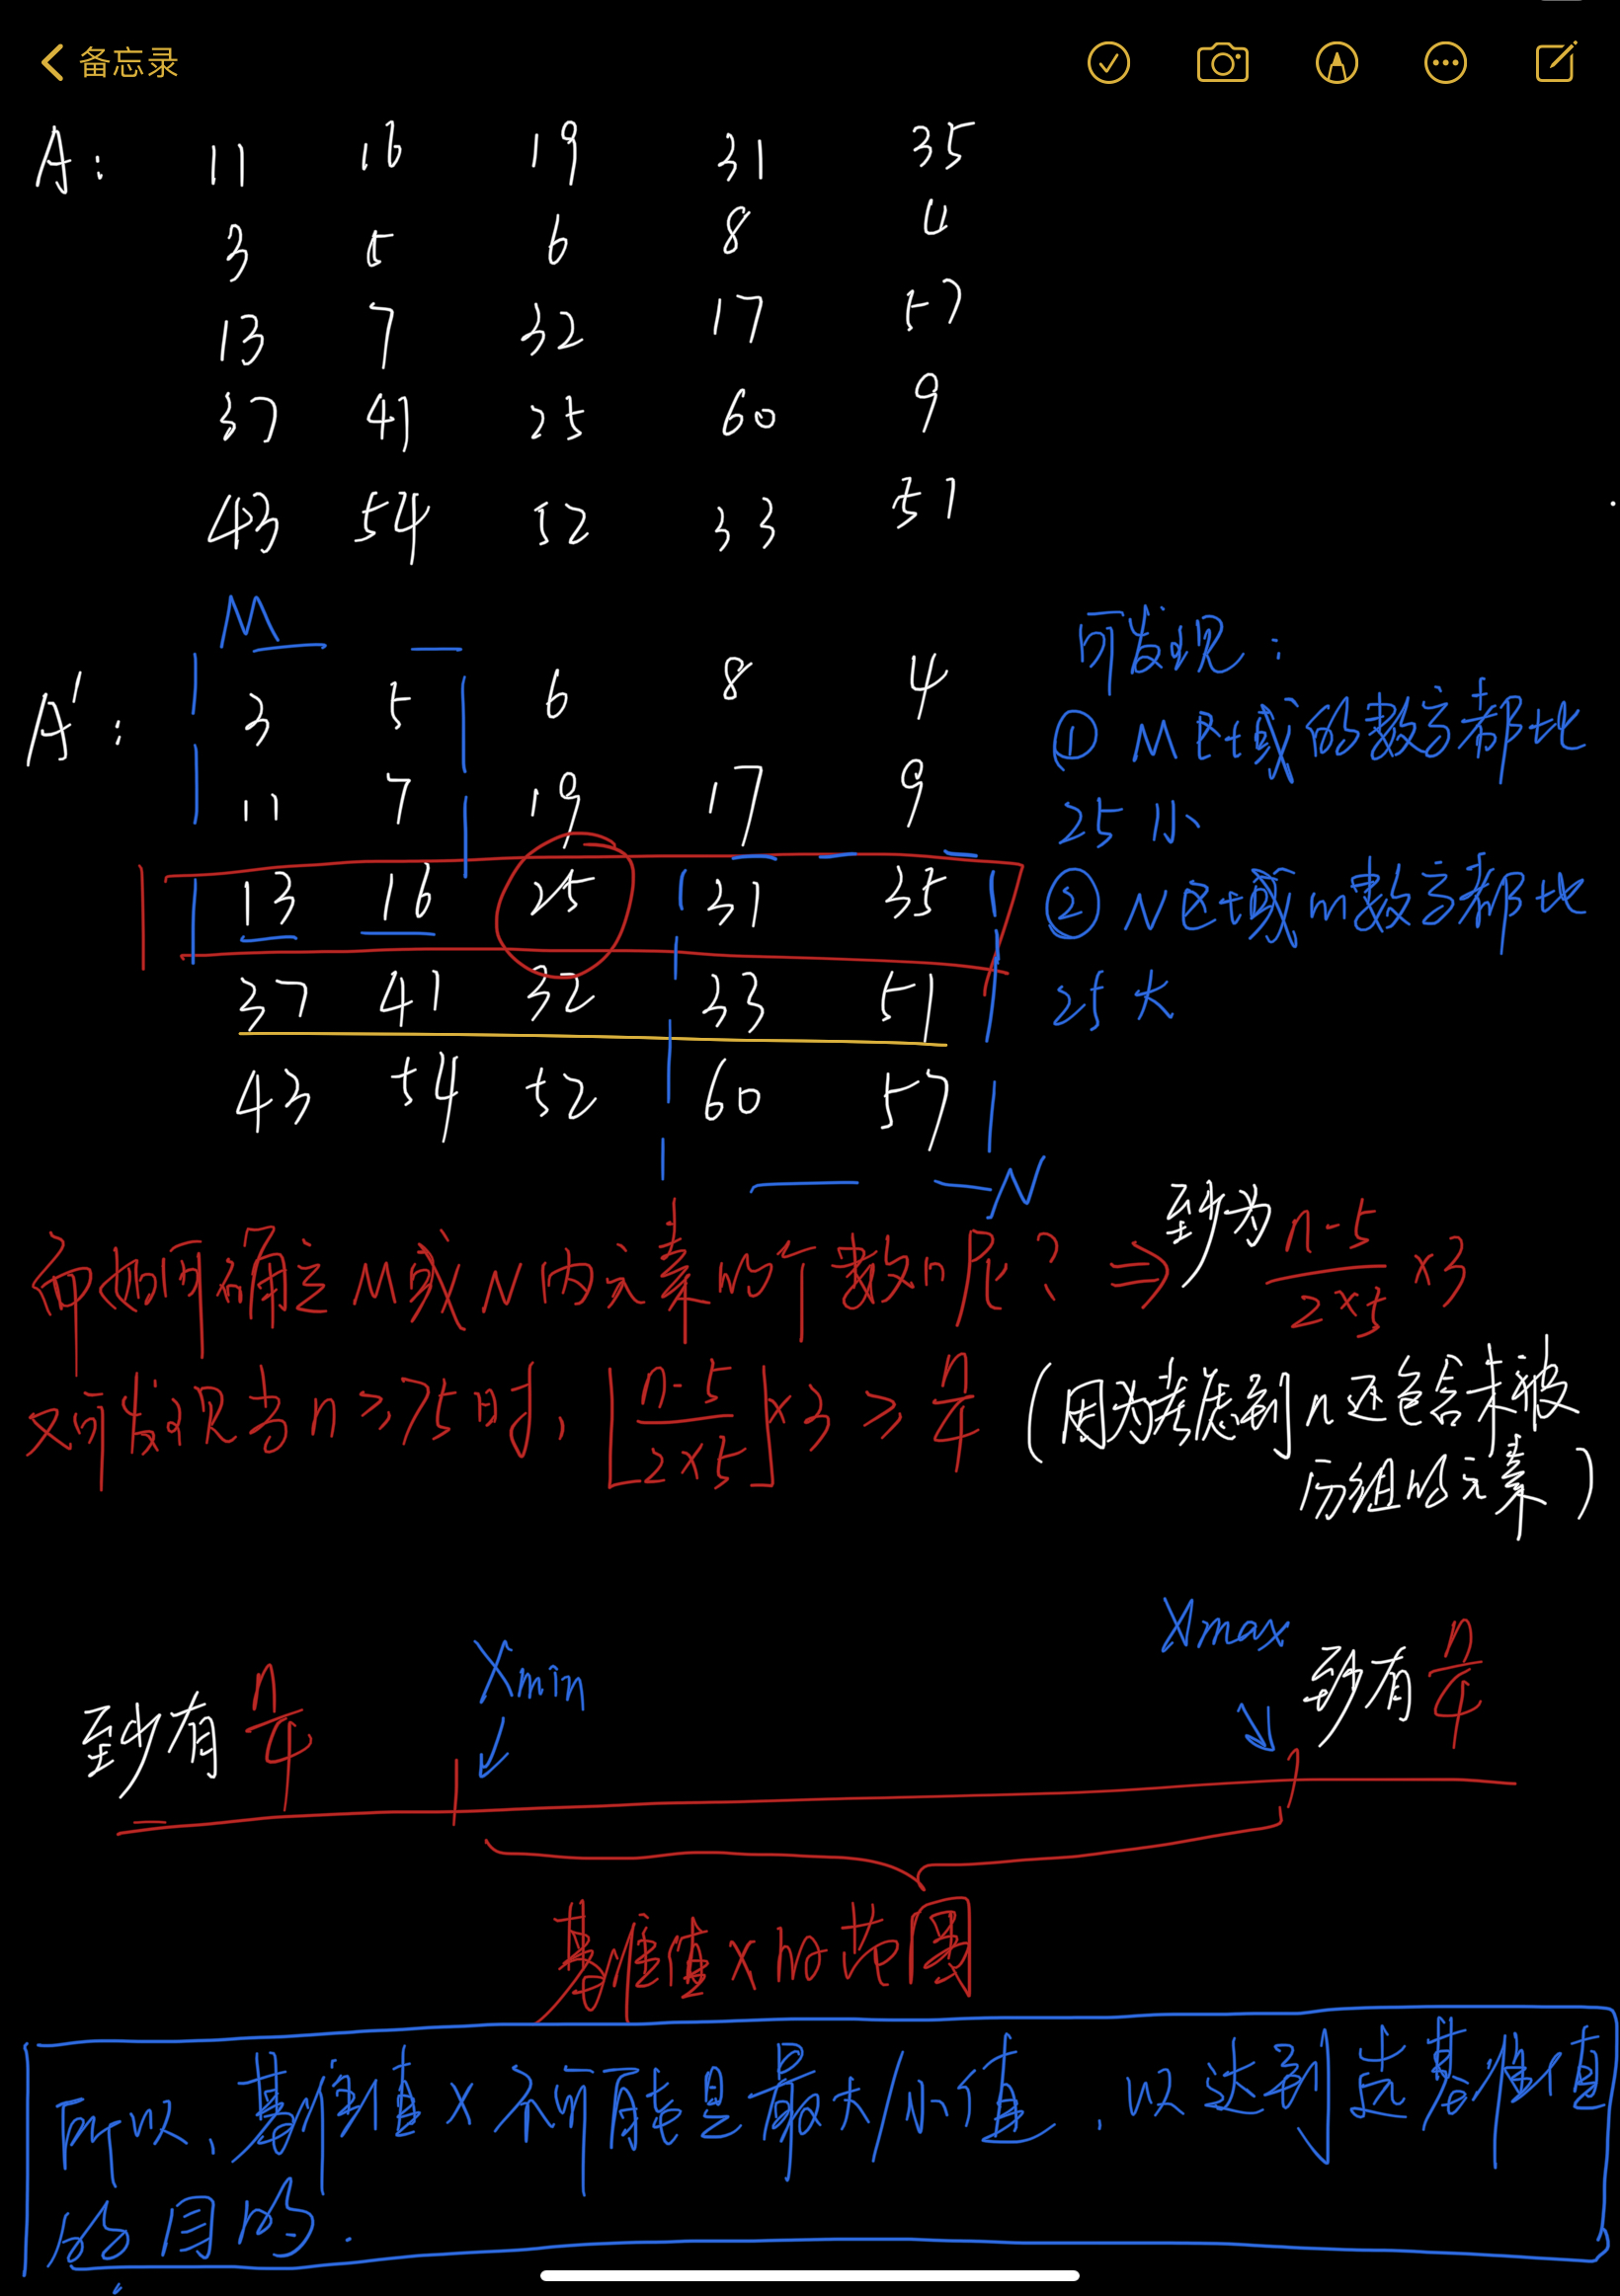 备忘录
A: 11 16 19 31 35
3 5 6 8 4
13 7 32 17 57
37 41 25 60 9
43 54 52 33 51
M
A': 3 5 6 8 4
11 7 19 17 9
13 16 25 31 35
37 41 32 33 51
43 54 52 60 57
N
可发现:
① M区域的数字都比
25小
② N区域的数字都比
25大
而如何确定M或N内元素的个数n呢? ⇒ 至少为 (n-5)/(2×5) ×3
又可发现当n≥75时, ⌊(n-5)/(2×5)⌋×3 ≥ n/4 (因为考虑到n还包含未被
分组的元素)
至少有 n/4 Xmin Xmax 至少有 n/4
基准值x的范围
所以、基准值x不可能是最大/小值, 以达到选基准值
的目的.